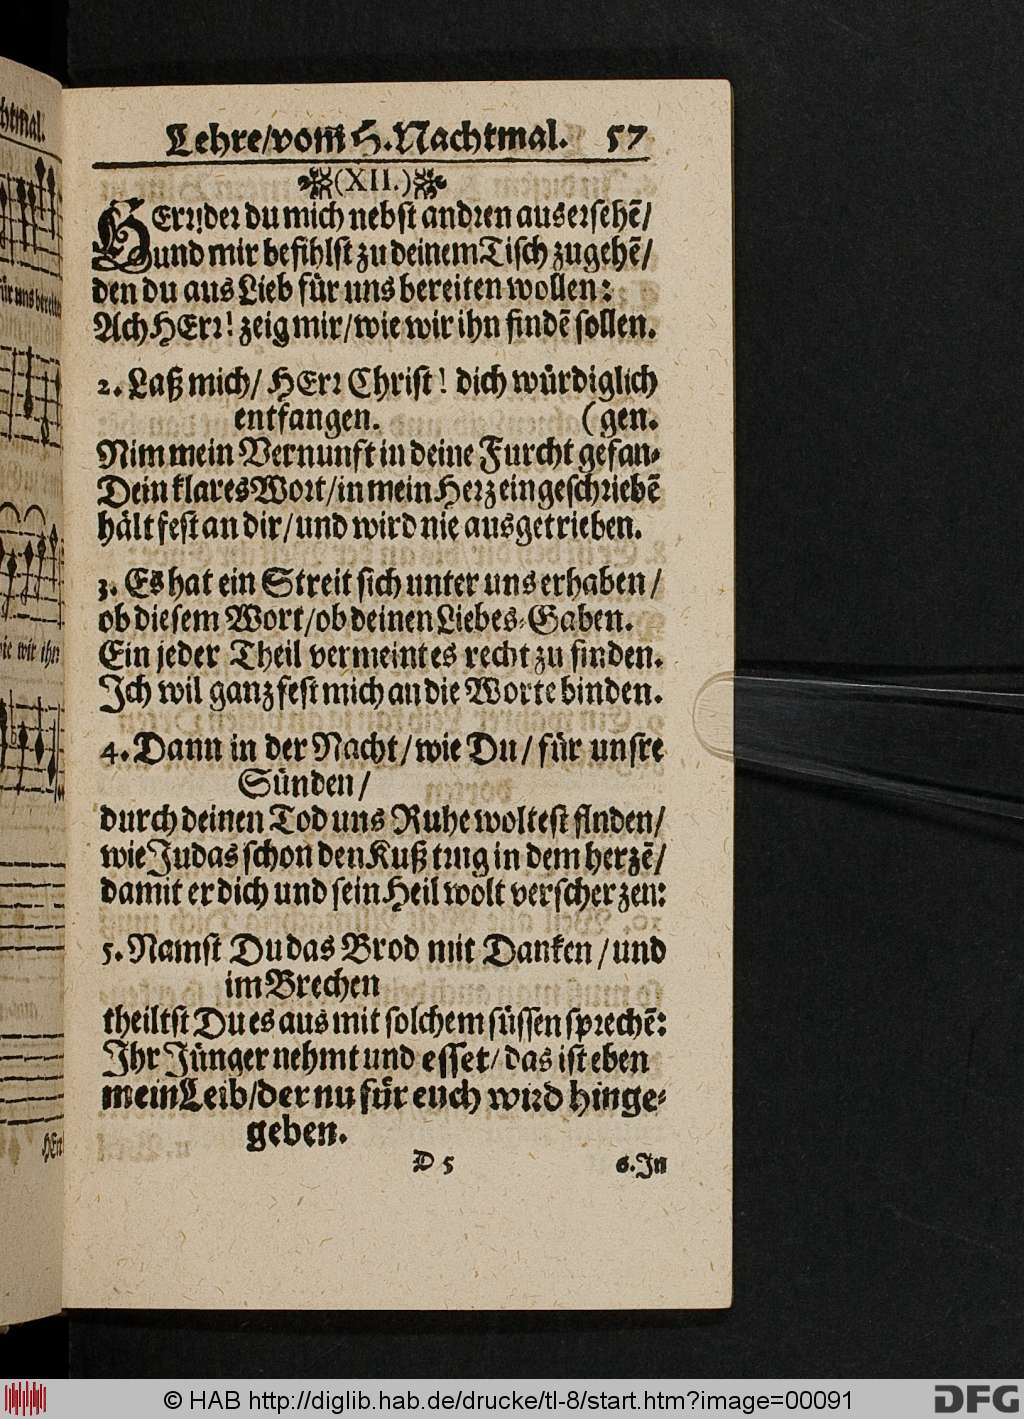 Lehre/vom̃ H. Nachtmal. 57
(XII.)
HErr! der du mich nebst andren ausersehẽ/
und mir befihlst zu deinem Tisch zugehẽ/
den du aus Lieb für uns bereiten wollen:
Ach HErr! zeig mir/wie wir ihn findẽ sollen.
2. Laß mich/ HErr Christ! dich würdiglich
entfangen. (gen.
Nim mein Vernunft in deine Furcht gefan-
Dein klares Wort/in mein Herz eingeschriebẽ
hält fest an dir/und wird nie ausgetrieben.
3. Es hat ein Streit sich unter uns erhaben/
ob diesem Wort/ob deinen Liebes-Gaben.
Ein jeder Theil vermeint es recht zu finden.
Ich wil ganz fest mich an die Worte binden.
4. Dann in der Nacht/wie Du/für unsre
Sünden/
durch deinen Tod uns Ruhe woltest finden/
wie Judas schon den Kuß trug in dem herzẽ/
damit er dich und sein Heil wolt verscherzen:
5. Namst Du das Brod mit Danken/und
im Brechen
theiltst Du es aus mit solchem süssen sprechẽ:
Ihr Jünger nehmt und esset/das ist eben
mein Leib/der nu für euch wird hinge-
geben.
D 5 6. In
© HAB http://diglib.hab.de/drucke/tl-8/start.htm?image=00091
DFG